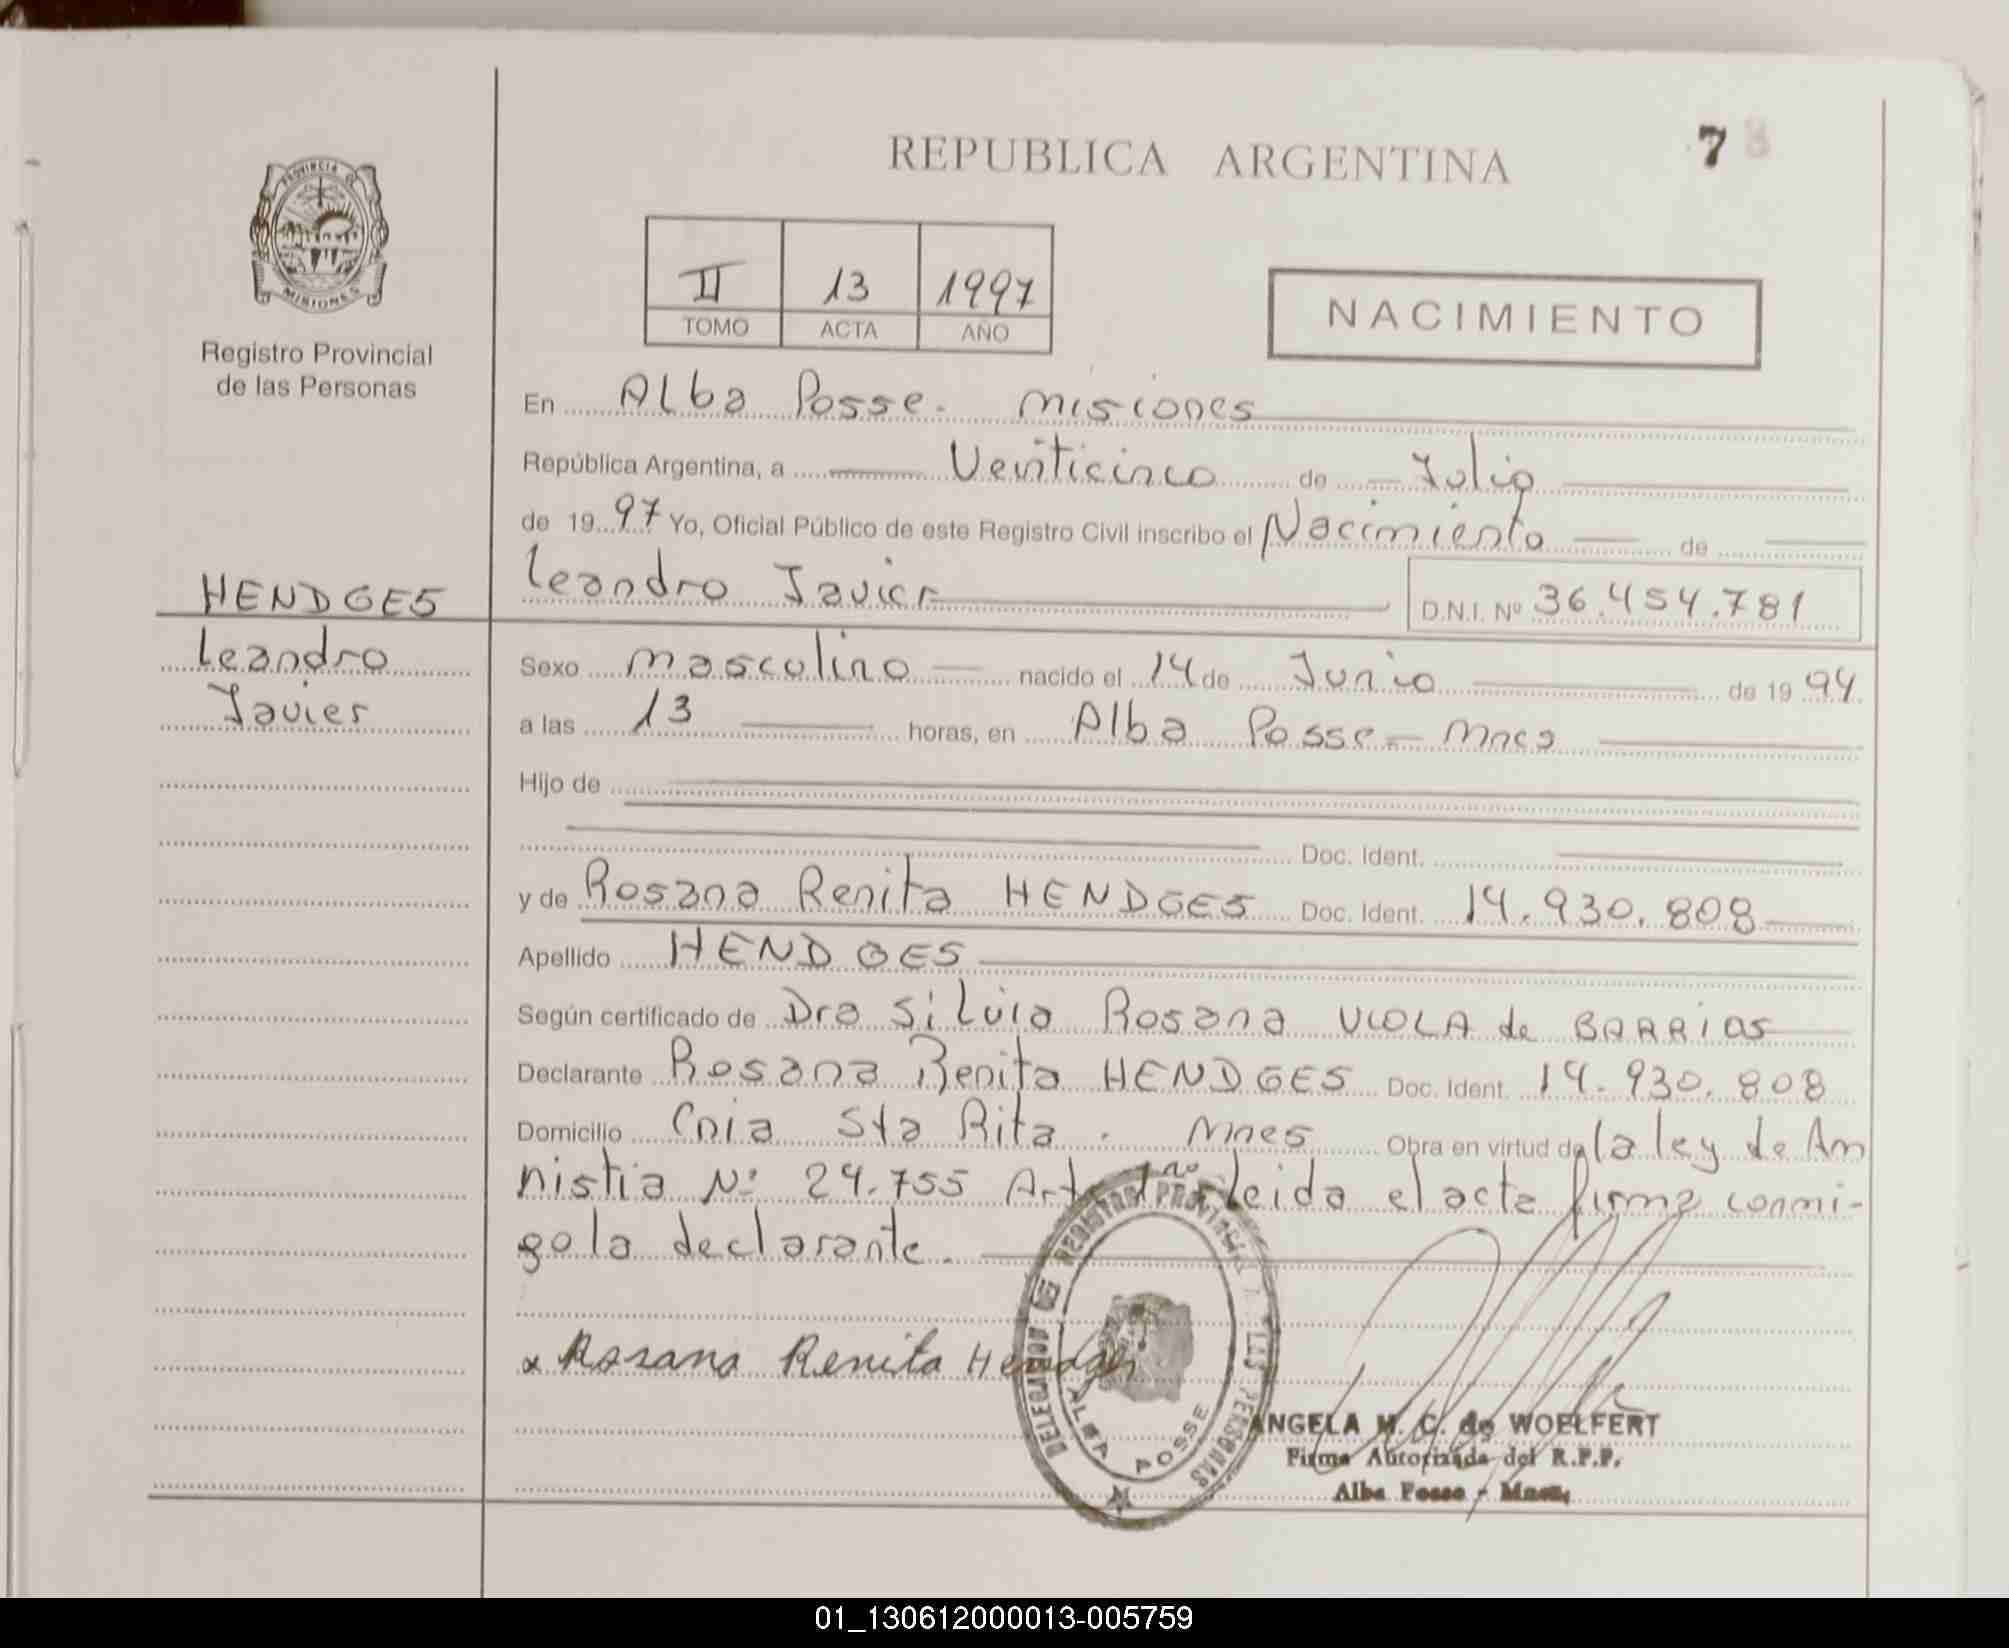 REPUBLICA ARGENTINA
7 8
PROVINCIA DE
MISIONES
Registro Provincial
de las Personas
II 13 1997
TOMO ACTA AÑO
NACIMIENTO
En Alba Posse. Misiones
República Argentina, a Veinticinco de Julio
de 1997 Yo, Oficial Público de este Registro Civil inscribo el Nacimiento de
Leandro Javier D.N.I. Nº 36.454.781
HENDGES
Leandro
Javier
Sexo masculino nacido el 14 de Junio de 1994
a las 13 horas, en Alba Posse - Mnes
Hijo de
Doc. Ident.
y de Rosana Renita HENDGES Doc. Ident. 14.930.808
Apellido HENDGES
Según certificado de Dra Silvia Rosana VIOLA de BARRIOS
Declarante Rosana Renita HENDGES Doc. Ident. 14.930.808
Domicilio Cnia Sta Rita. Mnes Obra en virtud de la ley de Am
nistia Nº 24.755 Art 1º Leida el acta firma conmi-
go la declarante.
x Rosana Renita Hendges
DELEGACION DEL REGISTRO PROVINCIAL DE LAS PERSONAS
ALBA POSSE
ANGELA M. C. de WOELFERT
Firma Autorizada del R.P.P.
Alba Posse - Mnes.
01_130612000013-005759